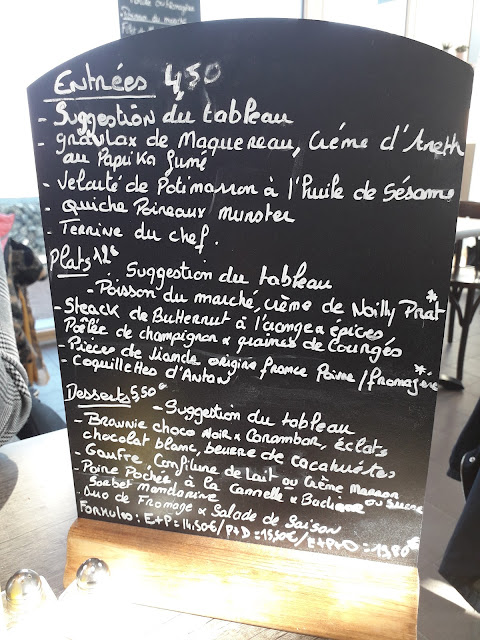 Entrées 4,50
- Suggestion du tableau
- gravlax de Maquereau, Crème d'Aneth
au Paprika fumé
- Velouté de Potimarron à l'huile de Sésame
- Quiche Poireaux munster
- Terrine du chef.
Plats 12€
- Suggestion du tableau
- Poisson du marché, crème de Noilly Prat*
- Steack de Butternut à l'orange & épices
Poêlée de champignon & graines de courges
- Pièces de viande origine france Poivre/fromagère*
- Coquillettes d'Anton
Desserts 5,50€
- Suggestion du tableau
- Brownie choco Noir & Carambar, éclats
chocolat blanc, beurre de cacahuètes
- Gaufre, Confiture de Lait ou Crème Marron ou sucre
- Poire Pochée à la Cannelle &
Sorbet mandarine
- Duo de Fromage & Salade de Saison
Formules : E+P = 14,50€ / P+D = 15,50€ / E+P+D = 19,80€